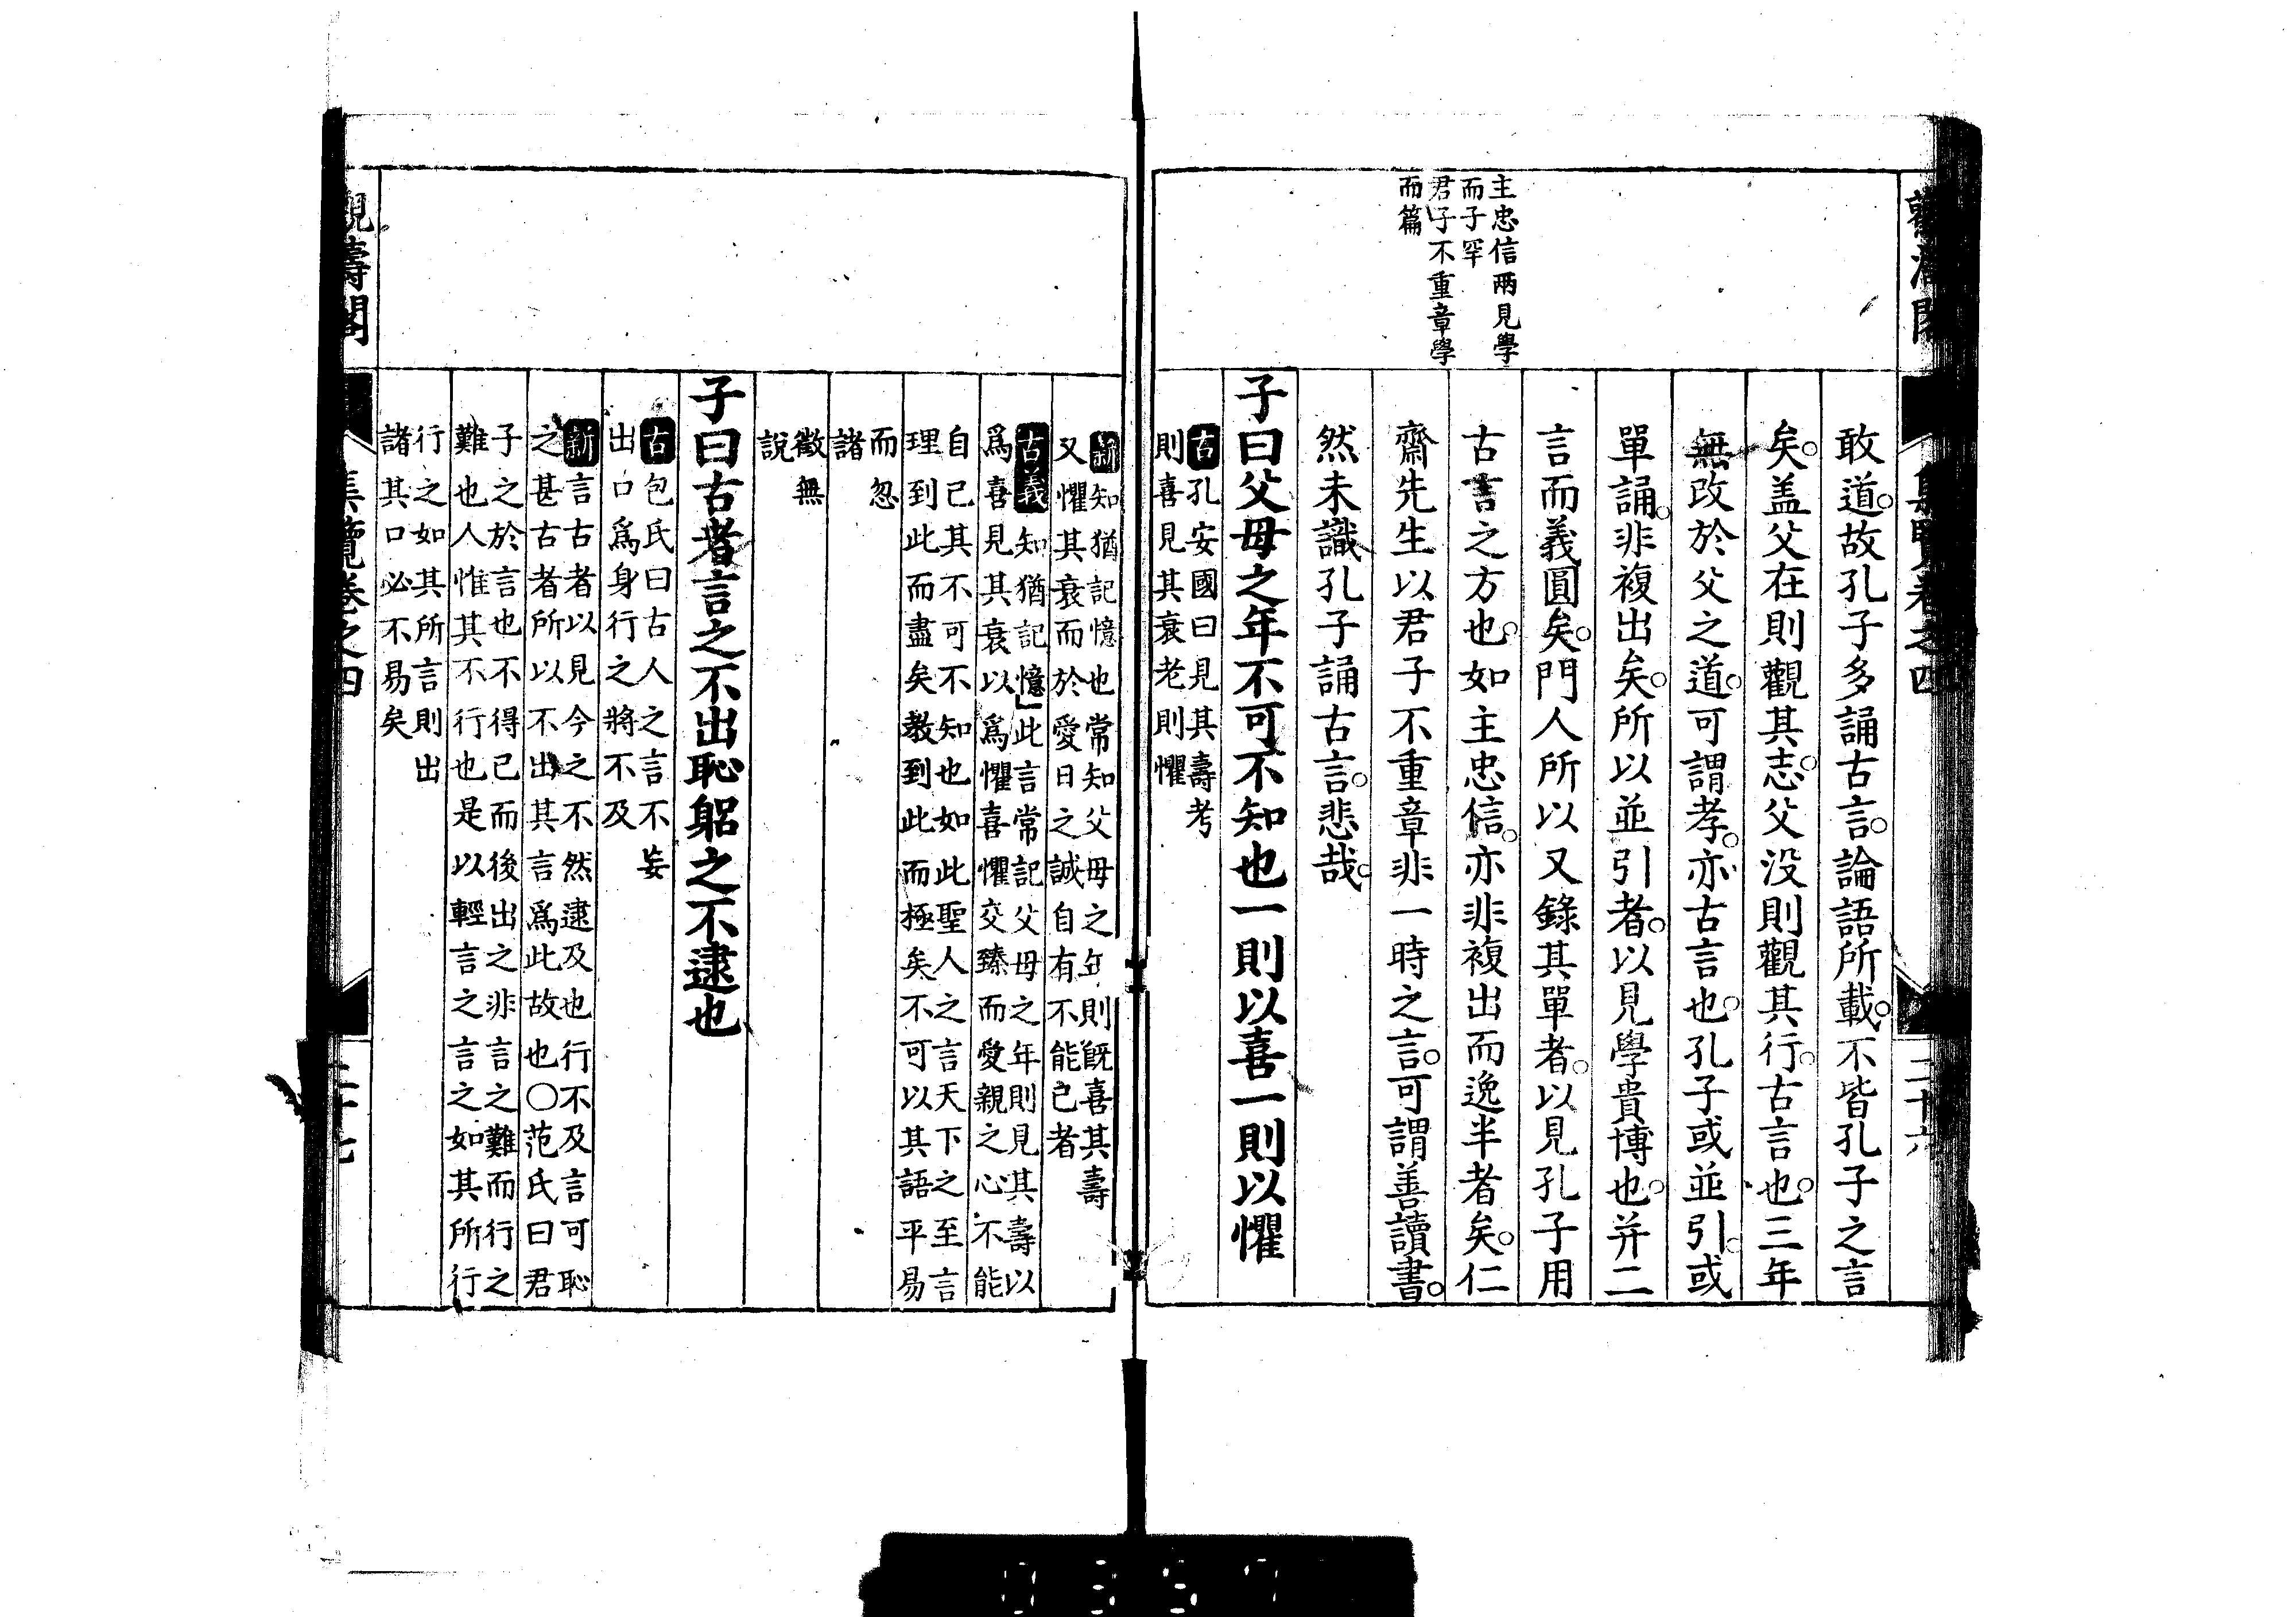 主忠信兩見學
而子罕
君子不重章學
而篇
敢道。故孔子多誦古言。論語所載。不皆孔子之言
矣。盖父在則觀其志。父没則觀其行。古言也。三年
無改於父之道。可謂孝。亦古言也。孔子或並引。或
單誦。非複出矣。所以並引者。以見學貴博也。并二
言而義圓矣。門人所以又錄其單者。以見孔子用
古言之方也。如主忠信。亦非複出而逸半者矣。仁
齋先生以君子不重章非一時之言。可謂善讀書。
然未識孔子誦古言。悲哉。
子曰父母之年不可不知也一則以喜一則以懼
古孔安國曰見其壽考
則喜見其衰老則懼
新知猶記憶也常知父母之年則既喜其壽
又懼其衰而於愛日之誠自有不能已者
古義知猶記憶」此言常記父母之年則見其壽以
爲喜見其衰以爲懼喜懼交臻而愛親之心不能
自己其不可不知也如此聖人之言天下之至言
理到此而盡矣教到此而極矣不可以其語平易
而忽
諸
徵無
說
子曰古者言之不出恥躬之不逮也
古包氏曰古人之言不妄
出口爲身行之將不及
新言古者以見今之不然逮及也行不及言可恥
之甚古者所以不出其言爲此故也○范氏曰君
子之於言也不得已而後出之非言之難而行之
難也人惟其不行也是以輕言之言之如其所行
行之如其所言則出
諸其口必不易矣
觀濤閣
集覽卷之四
二十六
二十七